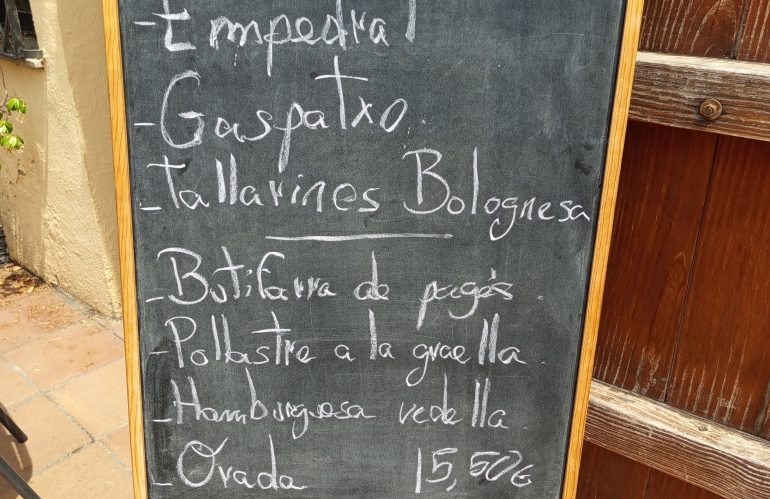 - Empedrat
- Gaspatxo.
- Tallarines Bolognesa
- Butifarra de pagés.
- Pollastre a la graella.
- Hamburguesa vedella.
- Orada 15,50€